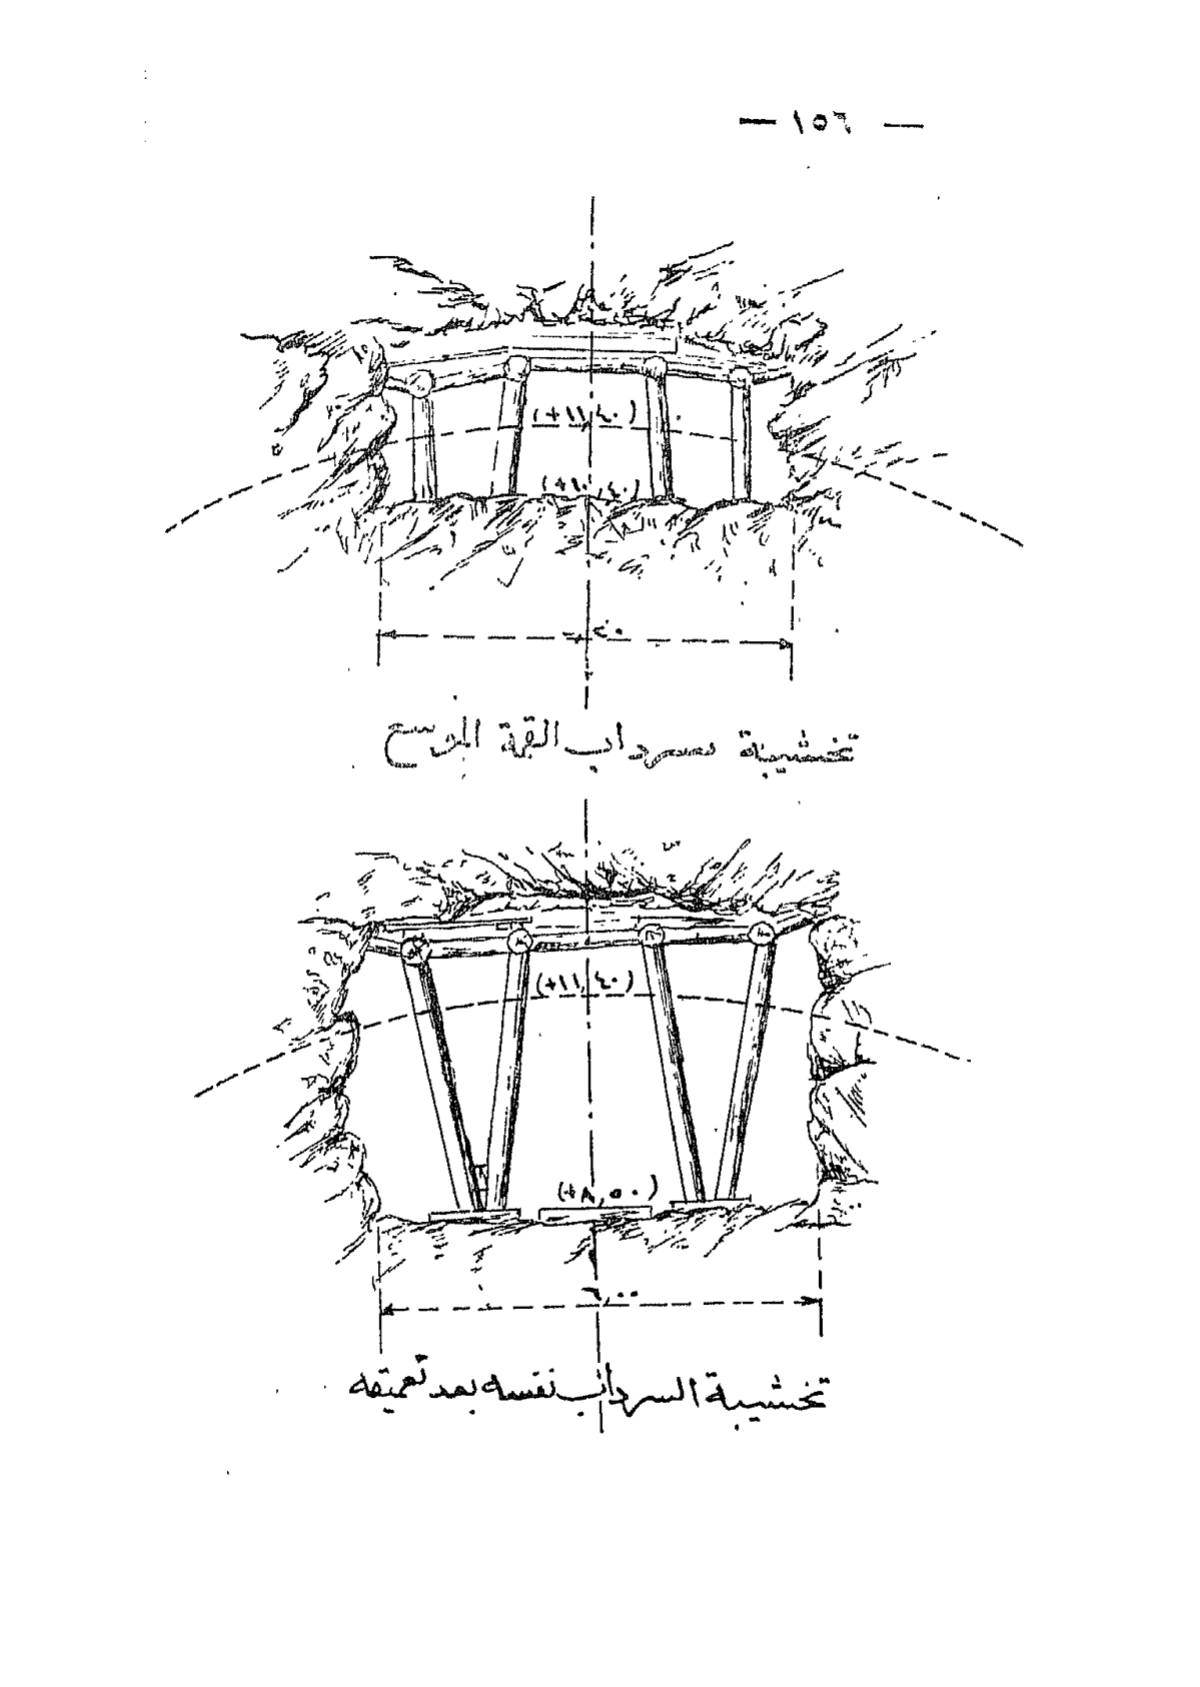 — ١٥٦ —
(+١١,٤٠)
(+١٠,٤٠)
تخشيبة سرداب القمة الموسع
(+١١,٤٠)
(+٨,٥٠)
٦,٠٠
تخشيبة السرداب نفسه بعد تعميقه